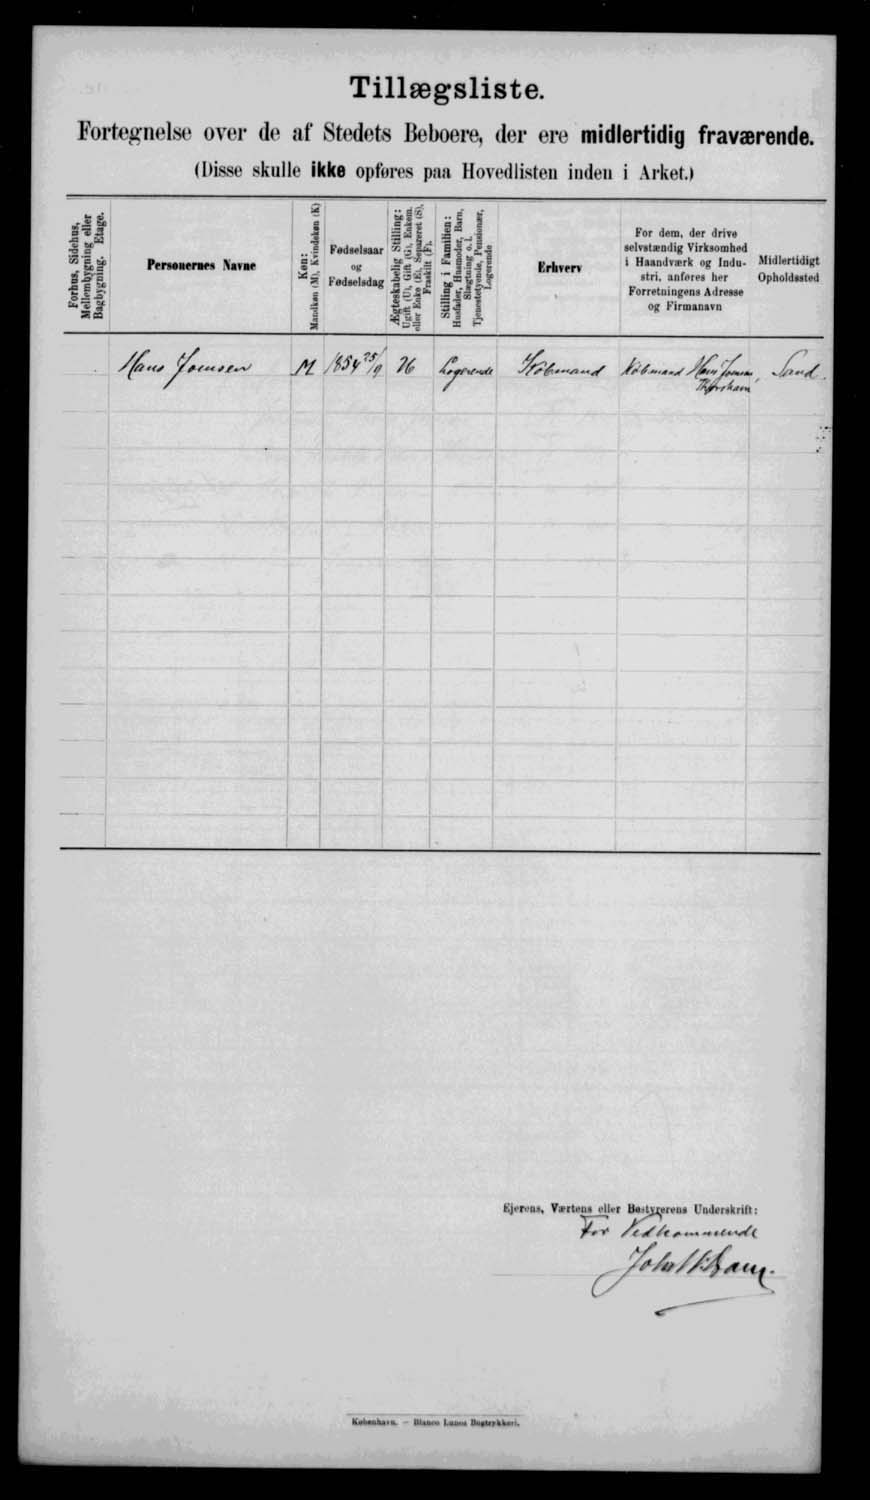 Tillægsliste.
Fortegnelse over de af Stedets Beboere, der ere midlertidig fraværende.
(Disse skulle ikke opføres paa Hovedlisten inden i Arket.)
Forhus, Sidehus,
Mellembygning eller
Bagbygning. Etage.
Personernes Navne
Køn:
Mandkøn (M), Kvindekøn (K)
Fødselsaar
og
Fødselsdag
Ægteskabelig Stilling:
Ugift (U), Gift (G), Enkem.
eller Enke (E), Separeret (S),
Fraskilt (F).
Stilling i Familien:
Husfader, Husmoder, Barn,
Slægtning o. l.
Tjenestetyende, Pensionær,
Logerende
Erhverv
For dem, der drive
selvstændig Virksomhed
i Haandværk og Indu-
stri, anføres her
Forretningens Adresse
og Firmanavn
Midlertidigt
Opholdssted
Hans Joensen M 1854 25/9 U Logerende Købmand Købmand Hans Joensen, Sand.
Thorshavn
Ejerens, Værtens eller Bestyrerens Underskrift:
For Vedkommende
København. — Bianco Lunos Bogtrykkeri.